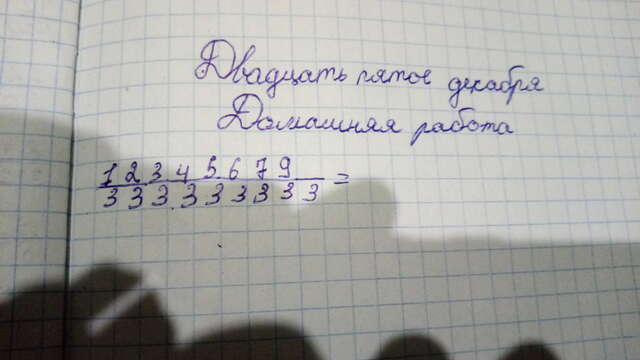 Двадцать пятое декабря
Домашняя работа
1 2 3 4 5 6 7 9
3 3 3 3 3 3 3 3 3 =